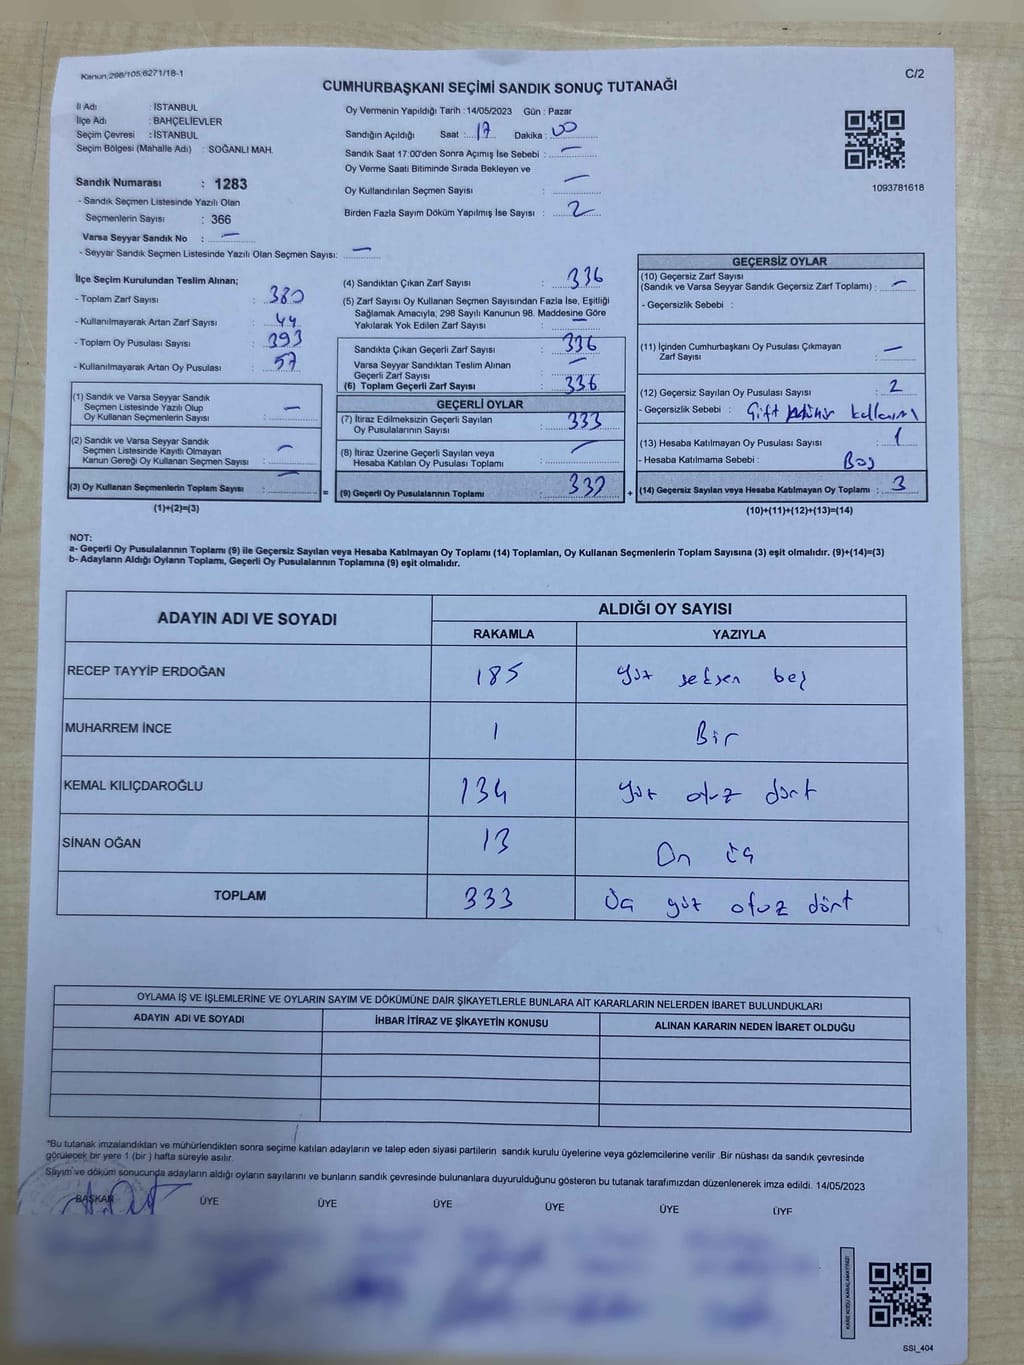 Kanun;298/105;6271/18-1
C/2
CUMHURBAŞKANI SEÇİMİ SANDIK SONUÇ TUTANAĞI
İl Adı : İSTANBUL
İlçe Adı : BAHÇELİEVLER
Seçim Çevresi : İSTANBUL
Seçim Bölgesi (Mahalle Adı) : SOĞANLI MAH.
Sandık Numarası : 1283
- Sandık Seçmen Listesinde Yazılı Olan
Seçmenlerin Sayısı : 366
Varsa Seyyar Sandık No : —
- Seyyar Sandık Seçmen Listesinde Yazılı Olan Seçmen Sayısı: —
Oy Vermenin Yapıldığı Tarih : 14/05/2023 Gün : Pazar
Sandığın Açıldığı Saat : 17 Dakika : 00
Sandık Saat 17:00'den Sonra Açımış İse Sebebi : —
Oy Verme Saati Bitiminde Sırada Bekleyen ve
Oy Kullandırılan Seçmen Sayısı : —
Birden Fazla Sayım Döküm Yapılmış İse Sayısı : 2
1093781618
İlçe Seçim Kurulundan Teslim Alınan;
- Toplam Zarf Sayısı : 380
- Kullanılmayarak Artan Zarf Sayısı : 44
- Toplam Oy Pusulası Sayısı : 393
- Kullanılmayarak Artan Oy Pusulası : 57
(1) Sandık ve Varsa Seyyar Sandık
Seçmen Listesinde Yazılı Olup
Oy Kullanan Seçmenlerin Sayısı : —
(2) Sandık ve Varsa Seyyar Sandık
Seçmen Listesinde Kayıtlı Olmayan
Kanun Gereği Oy Kullanan Seçmen Sayısı : —
(3) Oy Kullanan Seçmenlerin Toplam Sayısı : —
(1)+(2)=(3)
(4) Sandıktan Çıkan Zarf Sayısı : 336
(5) Zarf Sayısı Oy Kullanan Seçmen Sayısından Fazla İse, Eşitliği
Sağlamak Amacıyla; 298 Sayılı Kanunun 98. Maddesine Göre
Yakılarak Yok Edilen Zarf Sayısı : —
Sandıkta Çıkan Geçerli Zarf Sayısı : 336
Varsa Seyyar Sandıktan Teslim Alınan
Geçerli Zarf Sayısı : —
(6) Toplam Geçerli Zarf Sayısı : 336
GEÇERLİ OYLAR
(7) İtiraz Edilmeksizin Geçerli Sayılan
Oy Pusulalarının Sayısı : 333
(8) İtiraz Üzerine Geçerli Sayılan veya
Hesaba Katılan Oy Pusulası Toplamı : —
= (9) Geçerli Oy Pusulalarının Toplamı : 333
GEÇERSİZ OYLAR
(10) Geçersiz Zarf Sayısı
(Sandık ve Varsa Seyyar Sandık Geçersiz Zarf Toplamı) : —
- Geçersizlik Sebebi :
(11) İçinden Cumhurbaşkanı Oy Pusulası Çıkmayan
Zarf Sayısı : —
(12) Geçersiz Sayılan Oy Pusulası Sayısı : 2
- Geçersizlik Sebebi : Çift
(13) Hesaba Katılmayan Oy Pusulası Sayısı : 1
- Hesaba Katılmama Sebebi : Boş
+ (14) Geçersiz Sayılan veya Hesaba Katılmayan Oy Toplamı : 3
(10)+(11)+(12)+(13)=(14)
NOT:
a- Geçerli Oy Pusulalarının Toplamı (9) ile Geçersiz Sayılan veya Hesaba Katılmayan Oy Toplamı (14) Toplamları, Oy Kullanan Seçmenlerin Toplam Sayısına (3) eşit olmalıdır. (9)+(14)=(3)
b- Adayların Aldığı Oyların Toplamı, Geçerli Oy Pusulalarının Toplamına (9) eşit olmalıdır.
ADAYIN ADI VE SOYADI ALDIĞI OY SAYISI
RAKAMLA YAZIYLA
RECEP TAYYİP ERDOĞAN 185 yüz seksen beş
MUHARREM İNCE 1 Bir
KEMAL KILIÇDAROĞLU 134 yüz otuz dört
SİNAN OĞAN 13 On üç
TOPLAM 333 Üç yüz otuz dört
OYLAMA İŞ VE İŞLEMLERİNE VE OYLARIN SAYIM VE DÖKÜMÜNE DAİR ŞİKAYETLERLE BUNLARA AİT KARARLARIN NELERDEN İBARET BULUNDUKLARI
ADAYIN ADI VE SOYADI İHBAR İTİRAZ VE ŞİKAYETİN KONUSU ALINAN KARARIN NEDEN İBARET OLDUĞU
"Bu tutanak imzalandıktan ve mühürlendikten sonra seçime katılan adayların ve talep eden siyasi partilerin sandık kurulu üyelerine veya gözlemcilerine verilir .Bir nüshası da sandık çevresinde
görülecek bir yere 1 (bir ) hafta süreyle asılır.
Sayım ve döküm sonucunda adayların aldığı oyların sayılarını ve bunların sandık çevresinde bulunanlara duyurulduğunu gösteren bu tutanak tarafımızdan düzenlenerek imza edildi. 14/05/2023
BAŞKAN ÜYE ÜYE ÜYE ÜYE ÜYE ÜYE
KARE KODU KARALAMAYINIZ!
SSI_404